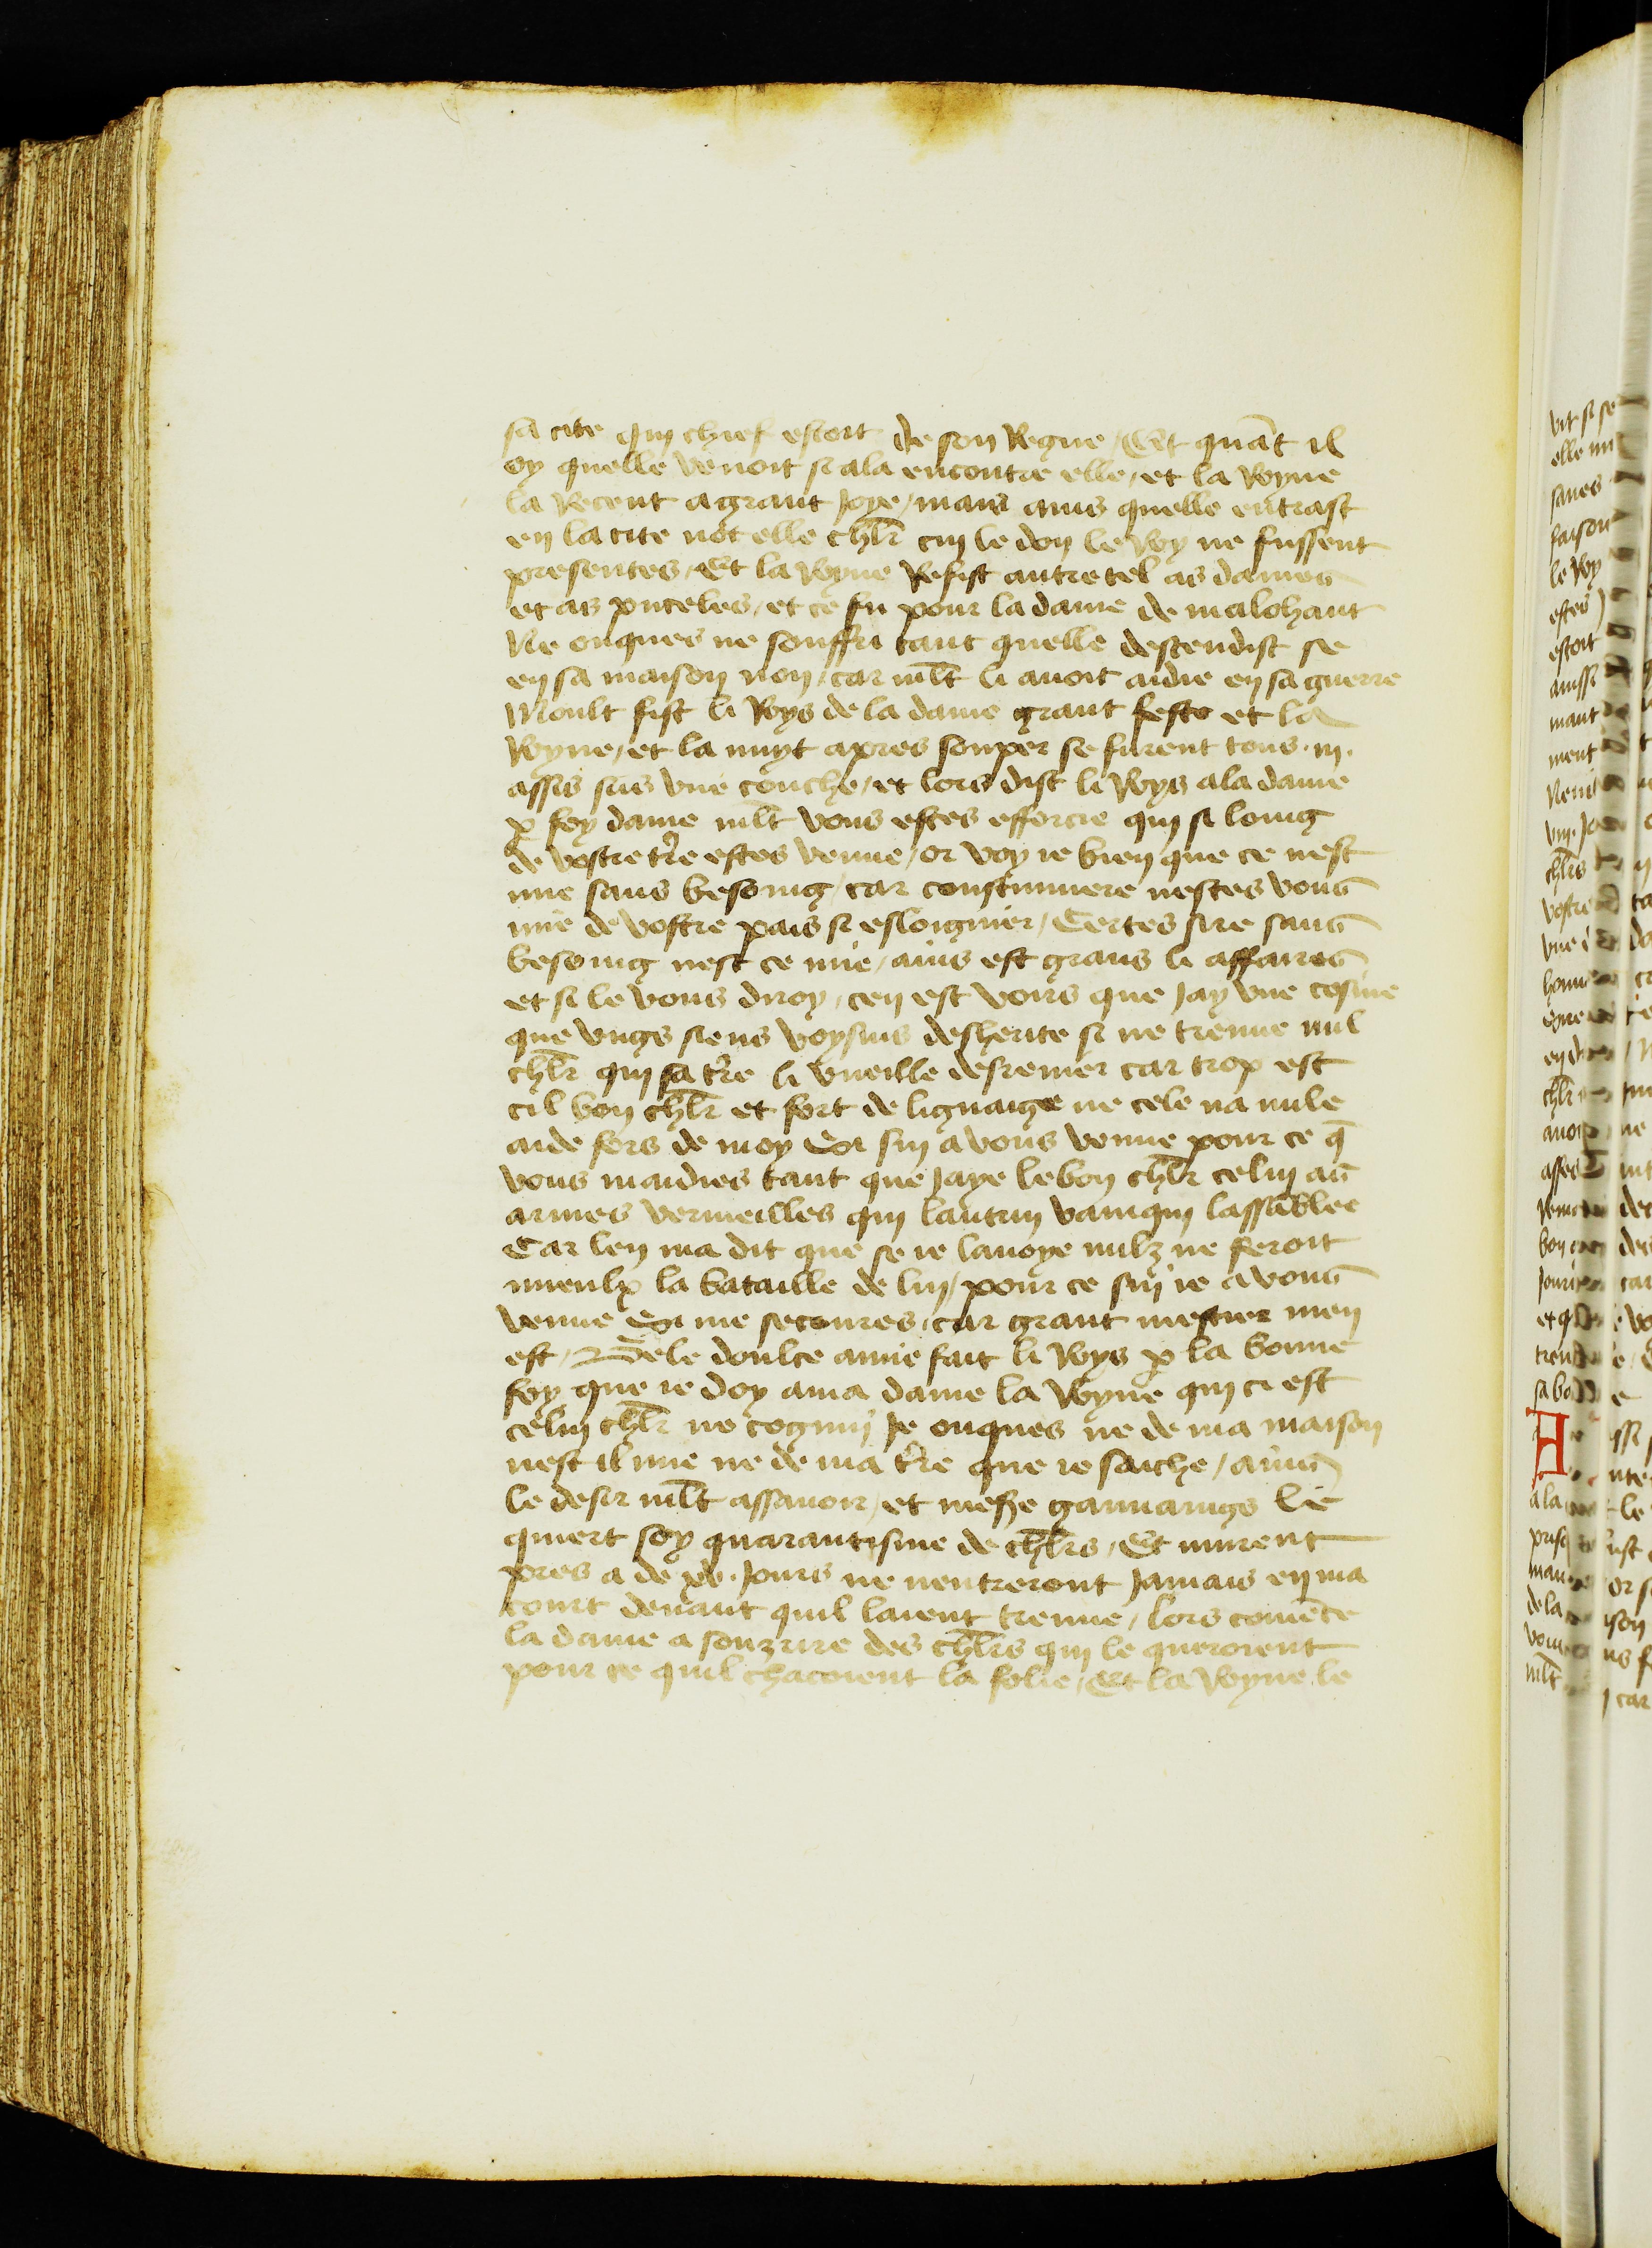 sa cite qui chief estoit de son Regne / Et quāt il
oy quelle venoit si ala encontre elle / et la Royne
la Receut a grant Joye / mais ains quelle entrast
en la cite not elle chlr̄ cui le don le Roy ne fussent
presentes / Et la Royne Refist autretel as dames
et as puceles / et ce fu pour la dame de malohaut
Ne onques ne souffri tant quelle descendist se
en sa maison non / car ml̄t li auoit aidie en sa guerre
Moult fist li Roys de la dame grant feste et la
Royne / et la nuyt apres souper se furent tous .iii.
assis sus vne couche / et lors dist li Roys a la dame
p̱ foy dame ml̄t vous estes efforcie qui si loing
de vostre tr̄re estes venue / or voy ie bien que ce nest
mie sans besoing / car constumiere nestes vous
mie de vostre pais si esloignier / Certes sire sans
besoing nest ce mie / ains est grans li affaires
et si le vous diroy / cen est voirs que Jay vne cosine
que vngs siens voysins desherite si ne treuue nul
chlr̄ qui sa tr̄re li vueille desrenier car trop est
cil bon chlr̄ et fort de lignaige ne cele na nule
aide fors de moy Si sui a vous venue pour ce q̄
vous maidies tant que Jaye le bon chlr̄ celui as
armes vermeilles qui lautrui vainqui lassāblee
Car len ma dit que se ie lauoye nulz ne feroit
mieulx la bataille de lui / pour ce sui ie a vous
venue Si me secoures / car grant mestier men
est / Bele doulce amie fait li Roys p̱ la bonne
foy que ie doy a ma dame la Royne qui ci est
celui chlr̄ ne cognui Je onques ne de ma maison
nest il mie ne de ma tr̄re que ie saiche / ainns
le desir ml̄t assauoir / et messe gauuaings le
quiert soy quarantisme de chlr̄s / Et murent
pres a de xv. Jours ne nentreront Jamais en ma
court deuant quil laient treuue / lors comēce
la dame a souzrire des chlr̄s qui le queroient
pour ce quil chacoient la folie / Et la Royne le